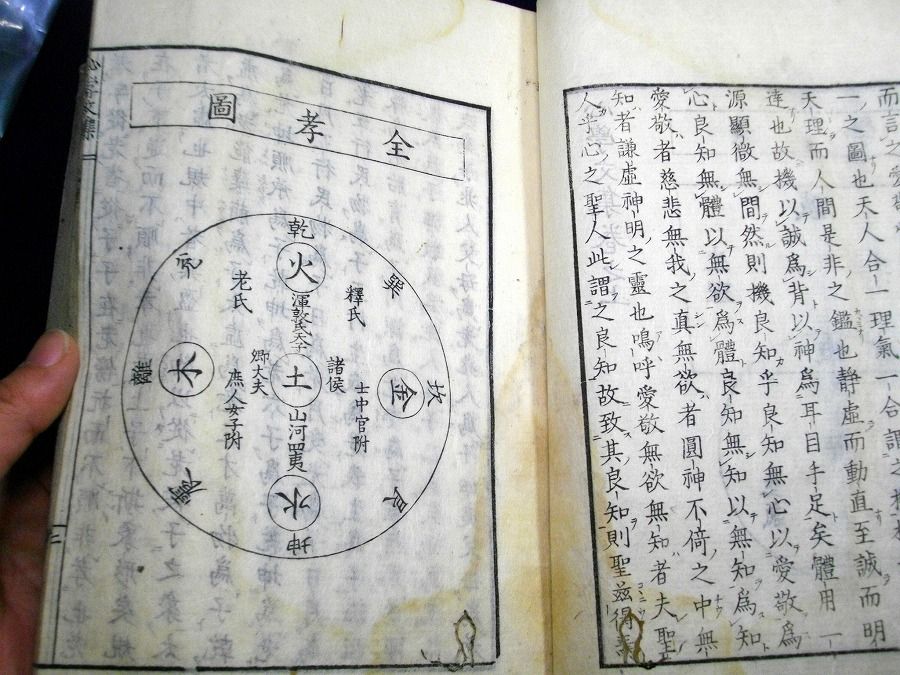 而言之愛
一之圖也天人合一理氣一合謂之
天理而人間是非之鑑也静虛而動直至誠而明
達也故機以誠爲背以神爲耳目手足矣體用一
源顯微無間然則機良知乎良知無心以愛敬爲
心良知無體以無欲爲體良知無知以無知爲知
愛敬者慈悲無我之真無欲者圓神不倚之中無
知者謙虛神明之靈也嗚呼愛敬無欲無知者夫聖
人乎心之聖人此謂之良知故致其良知則聖玆得
全孝圖
乾
火
渾敦氏天子
土
山河四夷
水
坤
巽
坎
金
艮
釋氏
諸侯
士中官附
老氏
卿大夫
庶人女子附
兌
離
木
震